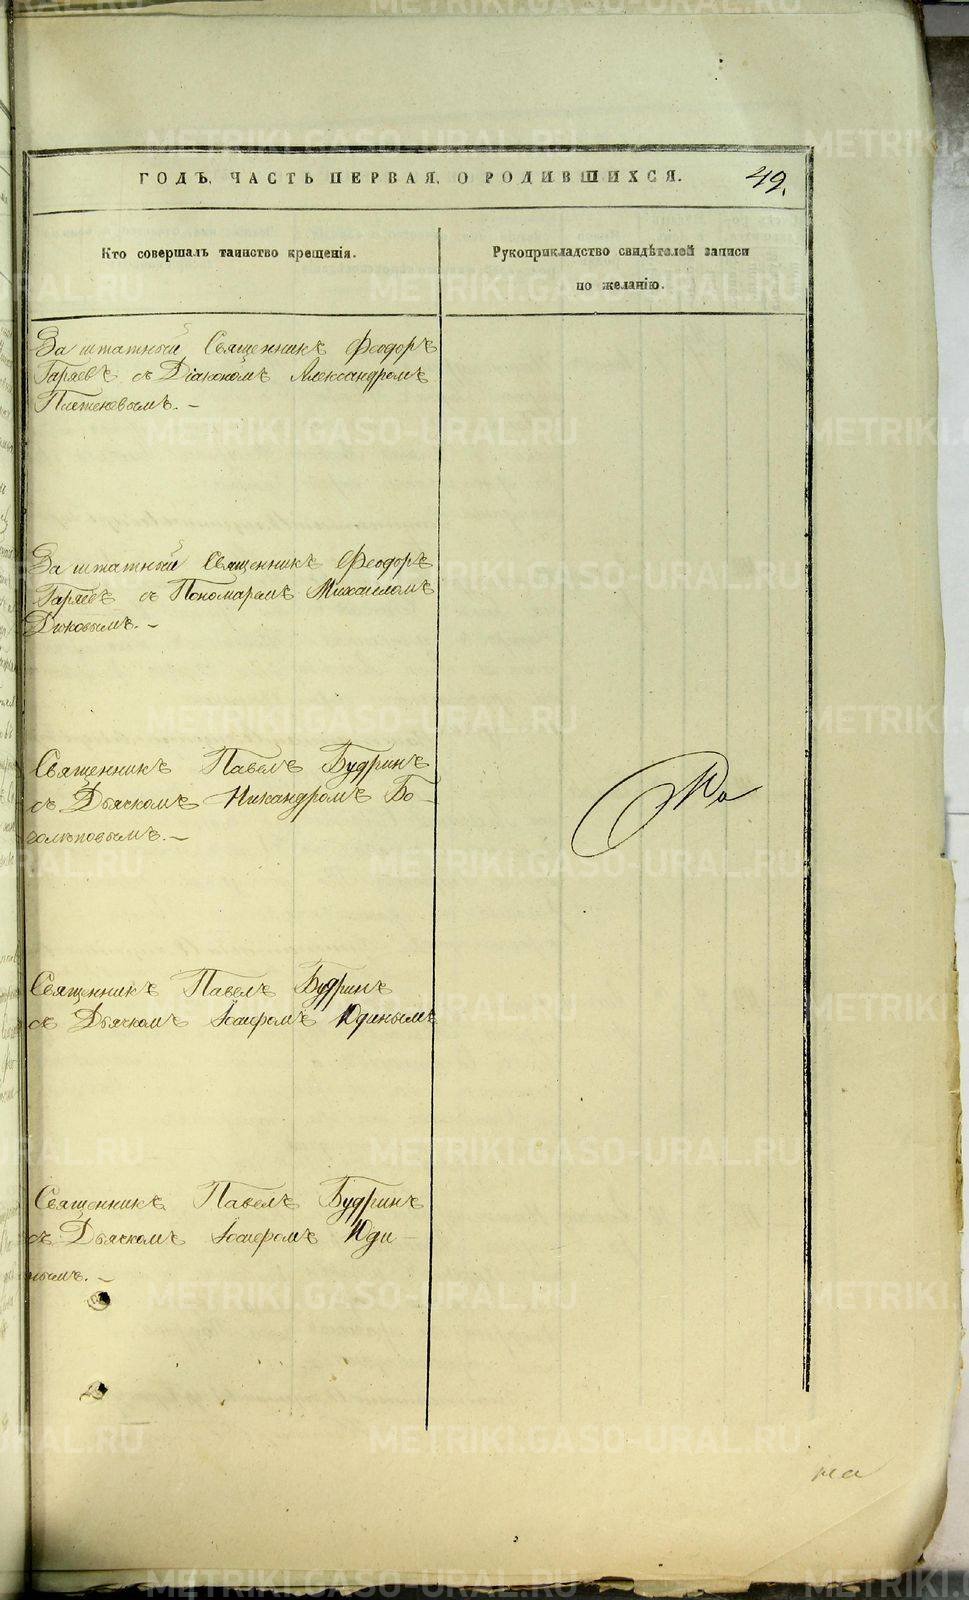 ГОДЪ, ЧАСТЬ ПЕРВАЯ, О РОДИВШИХСЯ.
49.
Кто совершалъ таинство крещенія.
Рукоприкладство свидѣтелей записи
по желанію.
Заштатный Священникъ Феодоръ
Гаряевъ съ Діакономъ Александромъ
Плетеневымъ. –
Заштатный Священникъ Феодоръ
Гаряевъ съ Пономаремъ Михаиломъ
Дюковымъ. –
Священникъ Павелъ Будринъ
съ Дьячкомъ Никандромъ Бо-
голѣповымъ. –
Священникъ Павелъ Будринъ
съ Дьячкомъ Іосифомъ Юдинымъ
Священникъ Павелъ Будринъ
съ Дьячкомъ Іосифомъ Юди-
нымъ. –
METRIKI.GASO-URAL.RU